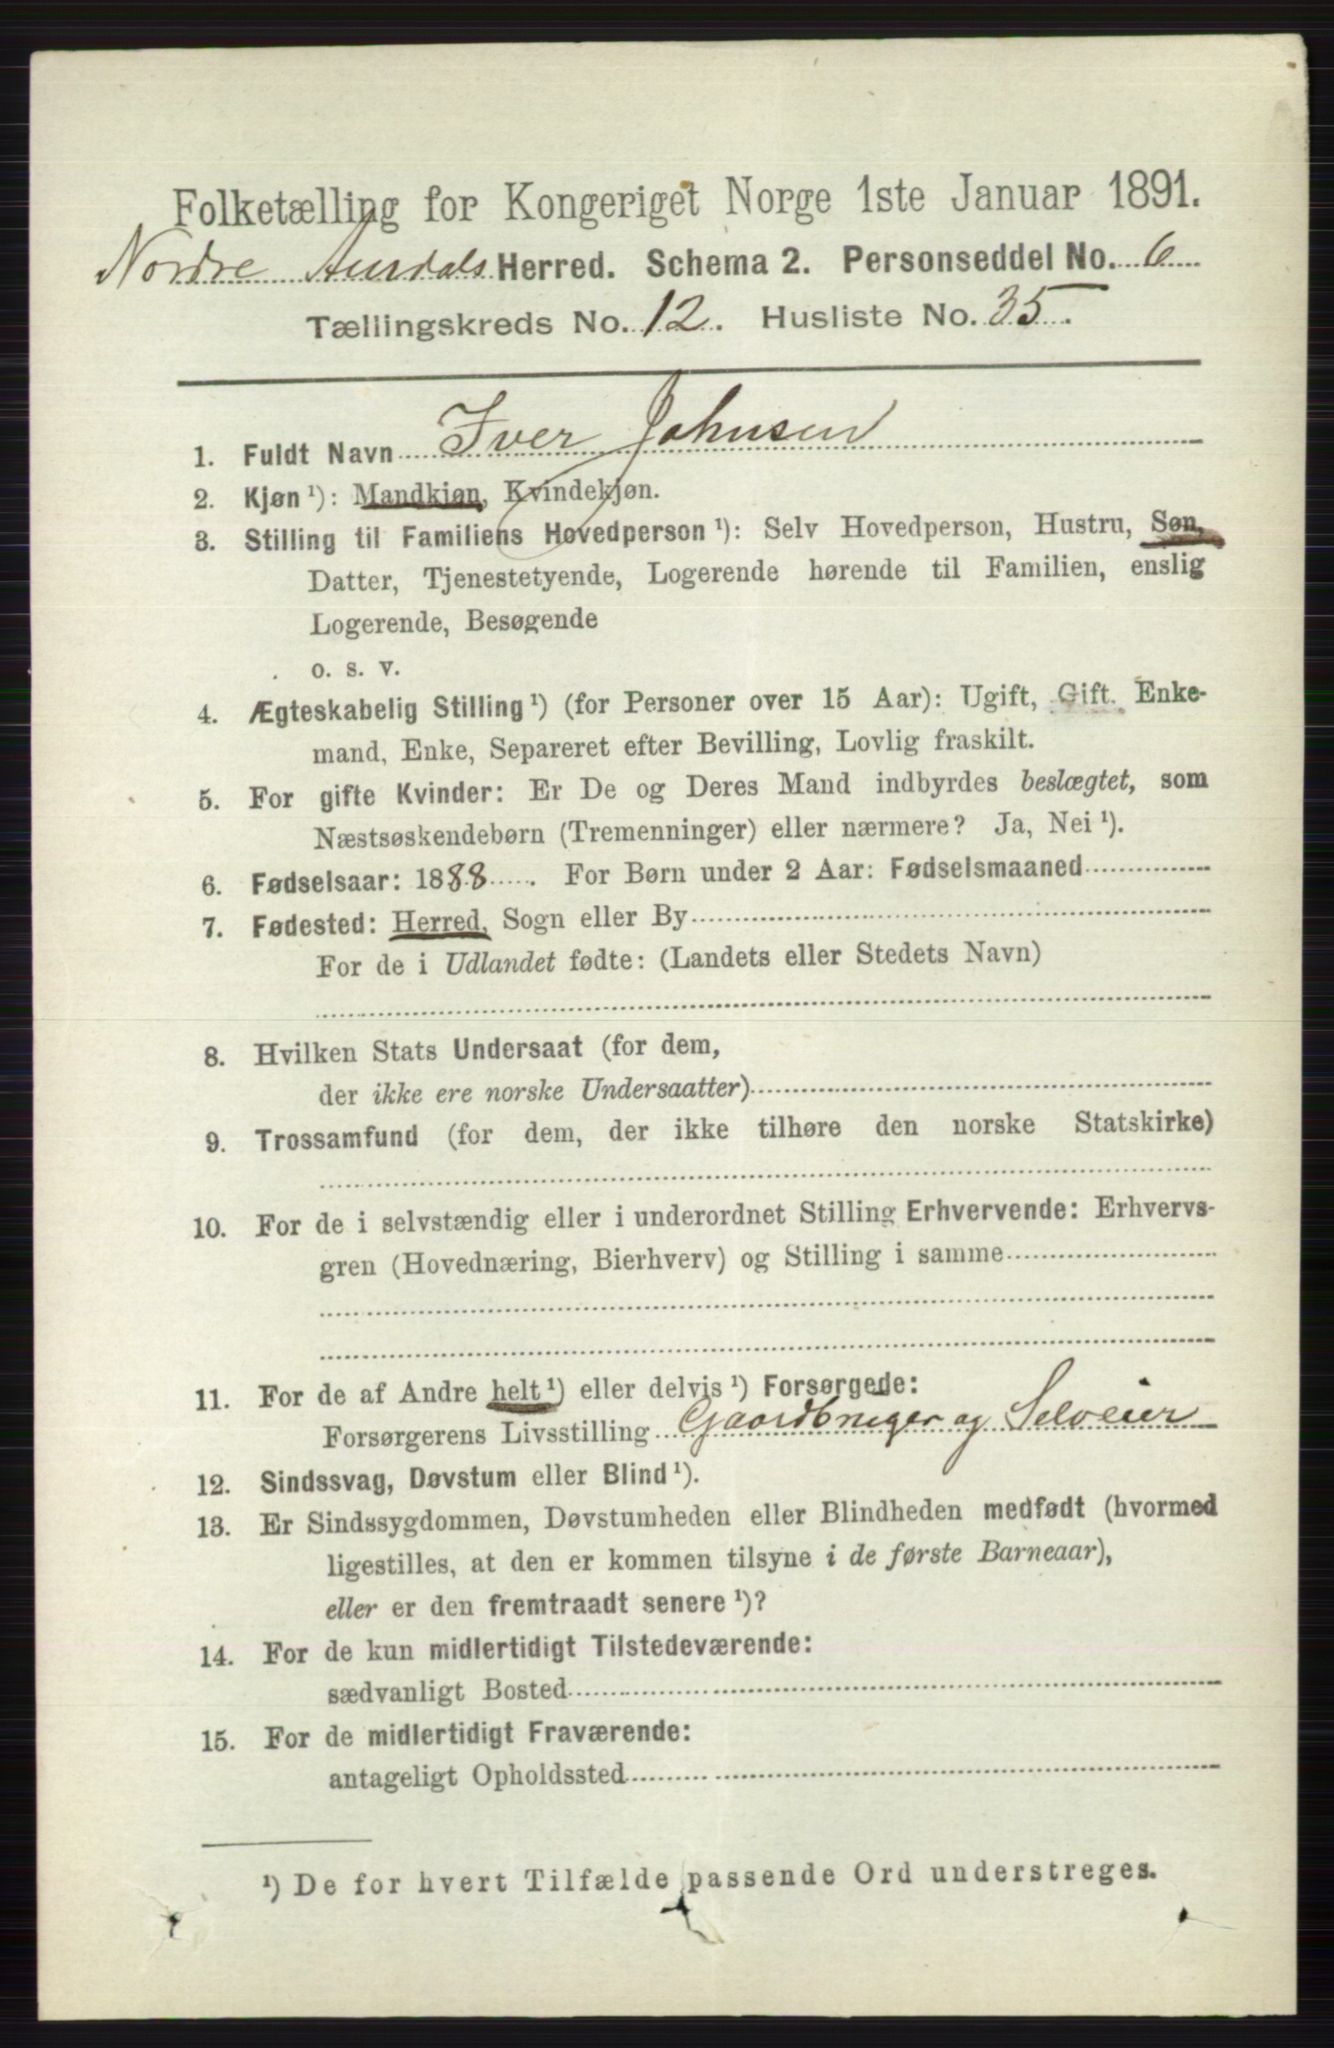 Folketælling for Kongeriget Norge 1ste Januar 1891.
Nordre Aurdals Herred. Schema 2. Personseddel No. 6
Tællingskreds No. 12. Husliste No. 35.
1. Fuldt Navn Iver Johnsen
2. Kjøn ¹): Mandkjøn, Kvindekjøn.
3. Stilling til Familiens Hovedperson ¹): Selv Hovedperson, Hustru, Søn,
Datter, Tjenestetyende, Logerende hørende til Familien, enslig
Logerende, Besøgende
o. s. v.
4. Ægteskabelig Stilling ¹) (for Personer over 15 Aar): Ugift, Gift, Enke-
mand, Enke, Separeret efter Bevilling, Lovlig fraskilt.
5. For gifte Kvinder: Er De og Deres Mand indbyrdes beslægtet, som
Næstsøskendebørn (Tremenninger) eller nærmere? Ja, Nei ¹).
6. Fødselsaar: 1888. For Børn under 2 Aar: Fødselsmaaned
7. Fødested: Herred, Sogn eller By
For de i Udlandet fødte: (Landets eller Stedets Navn)
8. Hvilken Stats Undersaat (for dem,
der ikke ere norske Undersaatter)
9. Trossamfund (for dem, der ikke tilhøre den norske Statskirke)
10. For de i selvstændig eller i underordnet Stilling Erhvervende: Erhvervs-
gren (Hovednæring, Bierhverv) og Stilling i samme
11. For de af Andre helt ¹) eller delvis ¹) Forsørgede:
Forsørgerens Livsstilling Gaardbruger og Selveier
12. Sindssvag, Døvstum eller Blind ¹).
13. Er Sindssygdommen, Døvstumheden eller Blindheden medfødt (hvormed
ligestilles, at den er kommen tilsyne i de første Barneaar),
eller er den fremtraadt senere ¹)?
14. For de kun midlertidigt Tilstedeværende:
sædvanligt Bosted
15. For de midlertidigt Fraværende:
antageligt Opholdssted
¹) De for hvert Tilfælde passende Ord understreges.